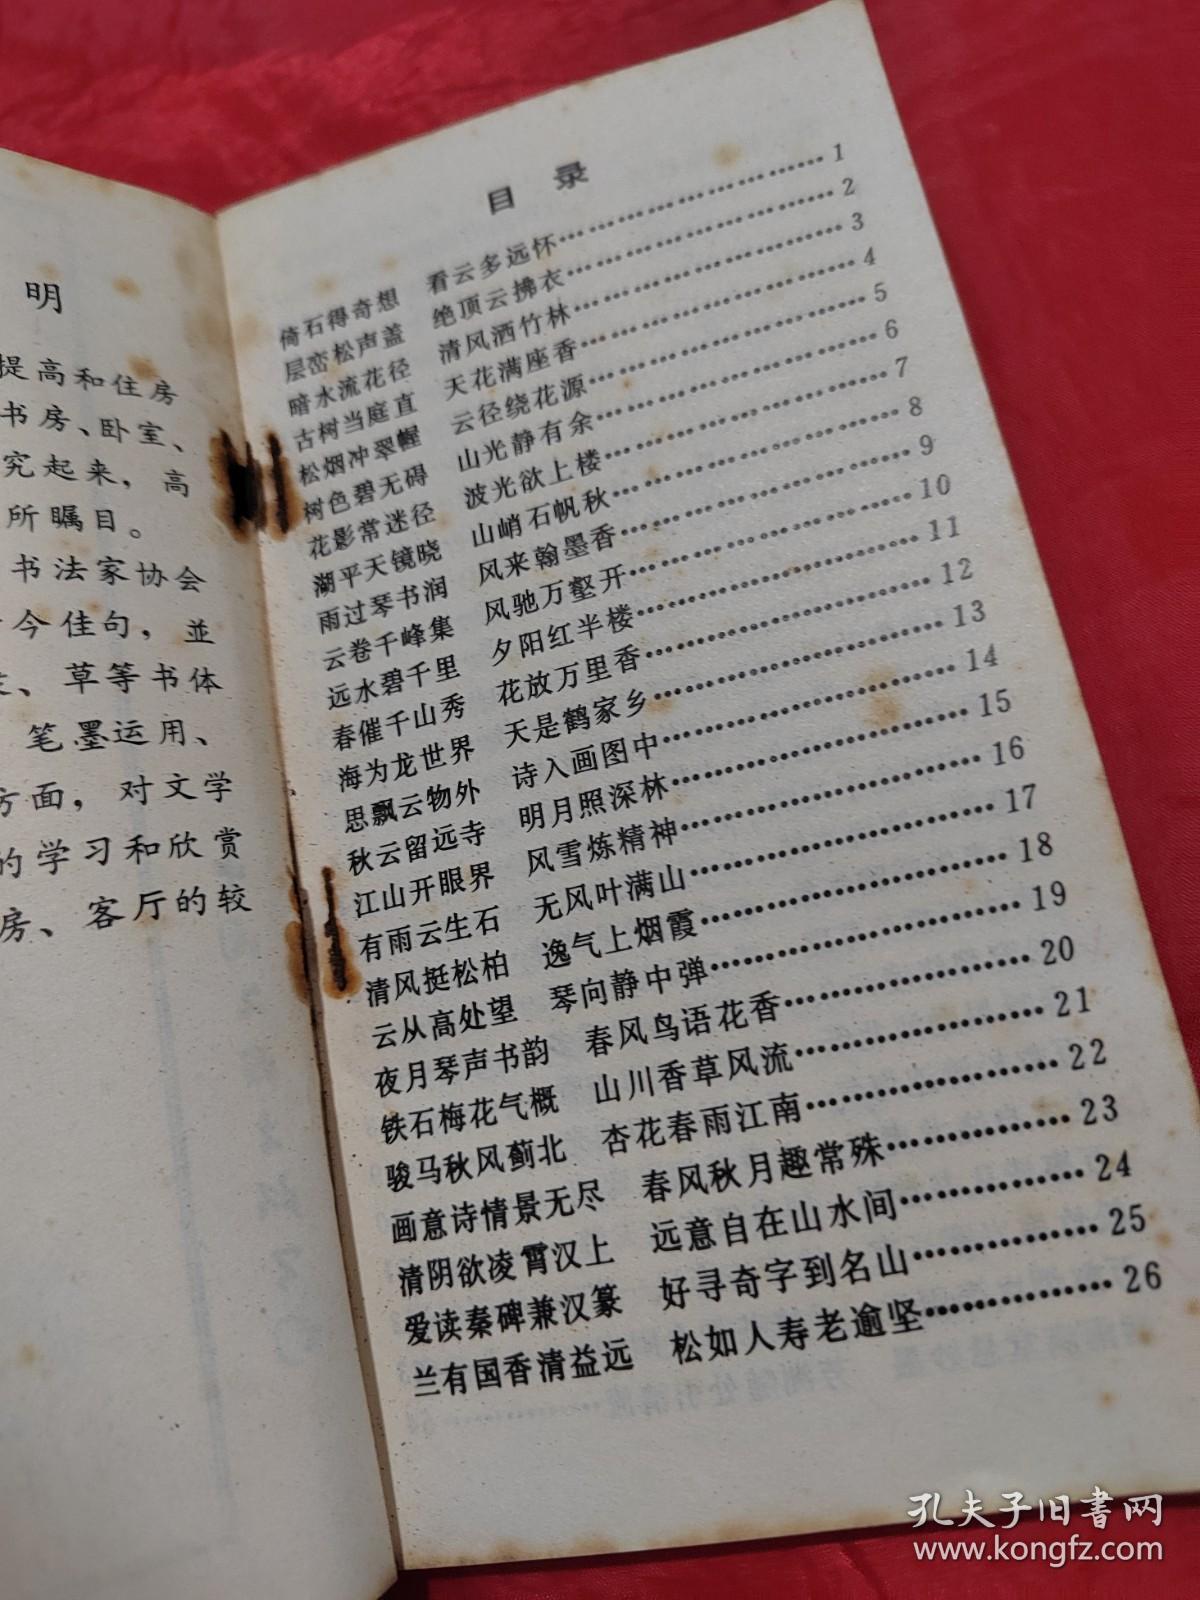 明
提高和住房
书房、卧室、
究起来，高
所瞩目。
书法家协会
今佳句，並
、草等书体
笔墨运用、
方面，对文学
的学习和欣赏
房、客厅的较
目录
倚石得奇想 看云多远怀 1
层峦松声盖 绝顶云拂衣 2
暗水流花径 清风洒竹林 3
古树当庭直 天花满座香 4
松烟冲翠幄 云径绕花源 5
树色碧无碍 山光静有余 6
花影常迷径 波光欲上楼 7
湖平天镜晓 山峭石帆秋 8
雨过琴书润 风来翰墨香 9
云卷千峰集 风驰万壑开 10
远水碧千里 夕阳红半楼 11
春催千山秀 花放万里香 12
海为龙世界 天是鹤家乡 13
思飘云物外 诗入画图中 14
秋云留远寺 明月照深林 15
江山开眼界 风雪炼精神 16
有雨云生石 无风叶满山 17
清风挺松柏 逸气上烟霞 18
云从高处望 琴向静中弹 19
夜月琴声书韵 春风鸟语花香 20
铁石梅花气概 山川香草风流 21
骏马秋风蓟北 杏花春雨江南 22
画意诗情景无尽 春风秋月趣常殊 23
清阴欲凌霄汉上 远意自在山水间 24
爱读秦碑兼汉篆 好寻奇字到名山 25
兰有国香清益远 松如人寿老逾坚 26
孔夫子旧書网
www.kongfz.com